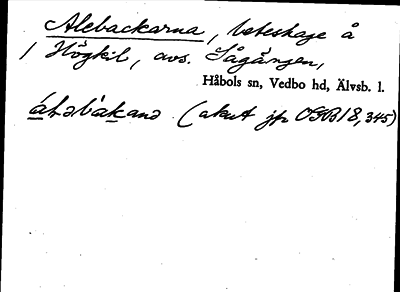 Alebackarna, beteshage å
/ Högkil, avs. Sågången,
Håbols sn, Vedbo hd, Älvsb. l.
(akut jfr OGB 18,345)